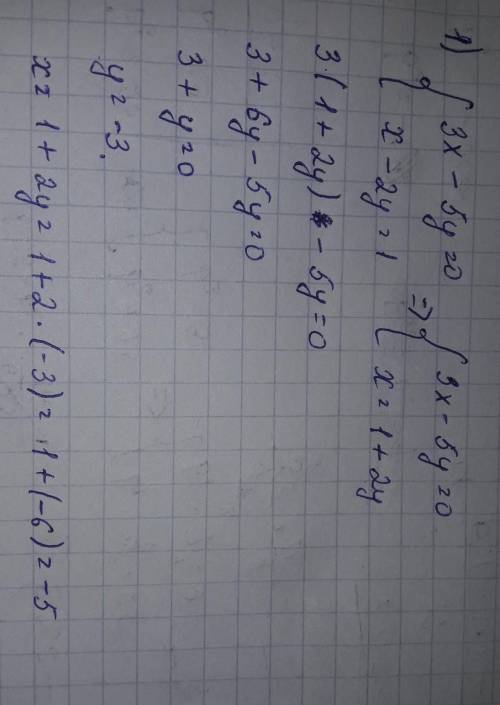 1) { 3x - 5y = 0 => { 3x - 5y = 0
{ x - 2y = 1 { x = 1 + 2y
3(1 + 2y) - 5y = 0
3 + 6y - 5y = 0
3 + y = 0
y = -3.
x = 1 + 2y = 1 + 2 · (-3) = 1 + (-6) = -5